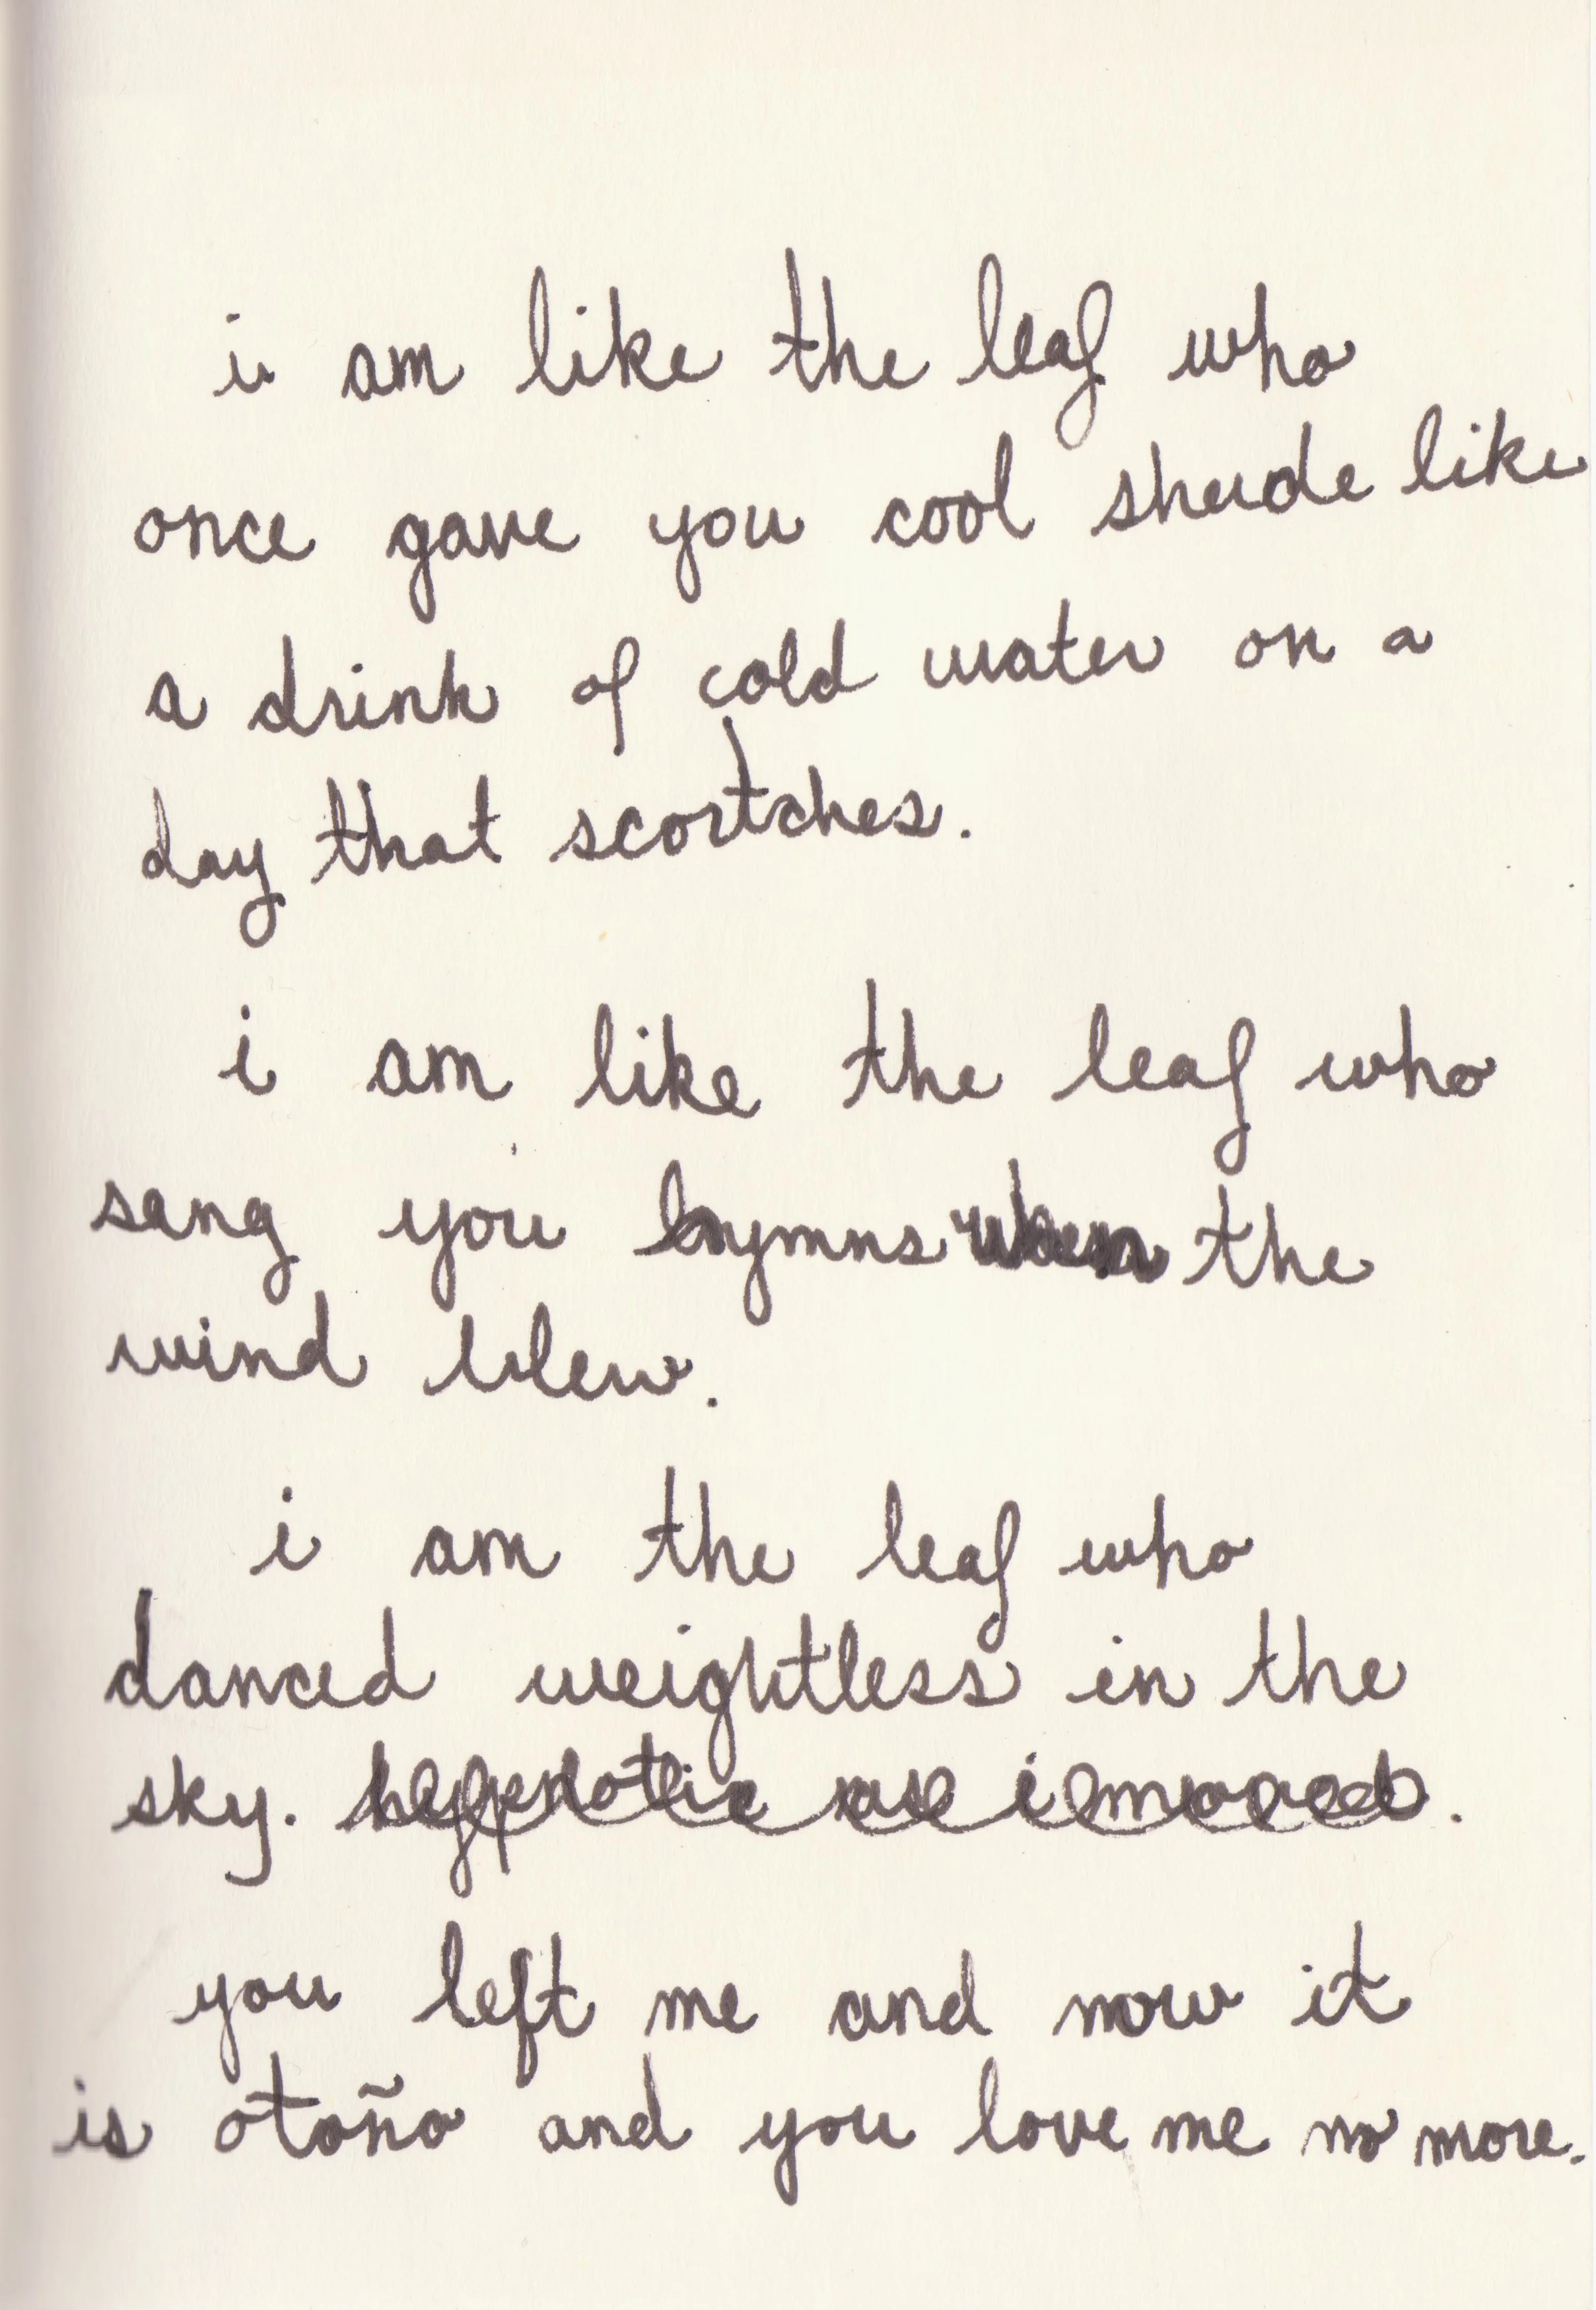 i am like the leaf who
once gave you cool shade like
a drink of cold water on a
day that scortches.
i am like the leaf who
sang you hymns when the
wind blew.
i am the leaf who
danced weightless in the
sky. hypnotic as i moved.
you left me and now it
is otoño and you love me no more.